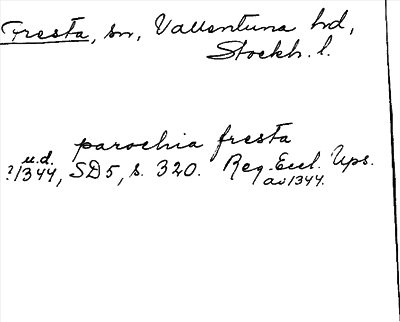 Fresta, sn, Vallentuna hd,
Stockh. l.
parochia fresta
u.d.
?/1344, SD5, s. 320. Reg. Eccl. Ups.
av 1344.